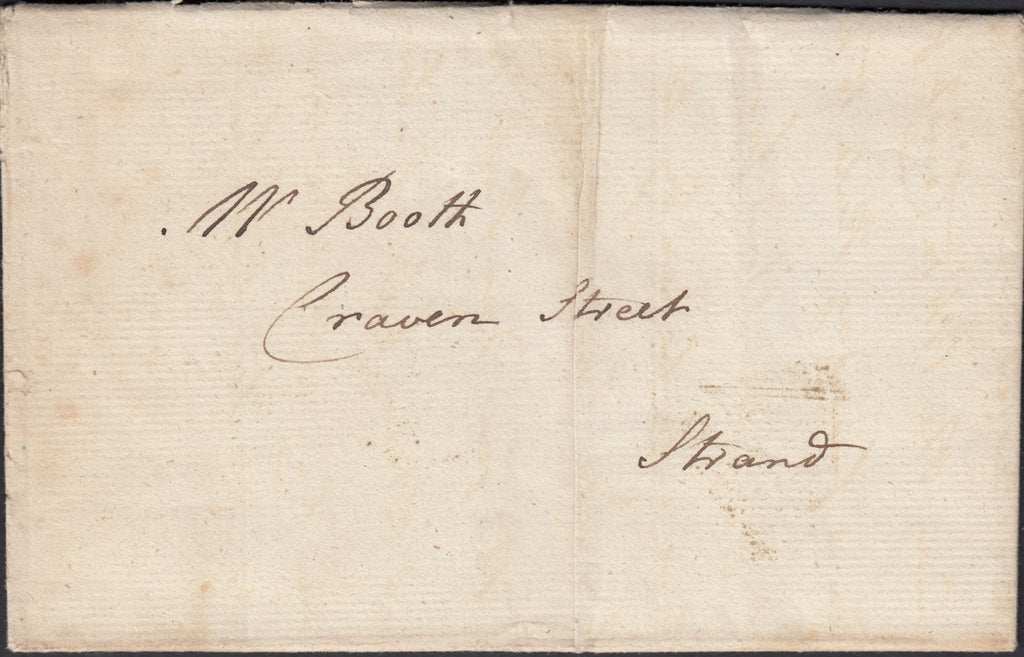 Mr Booth
Craven Street
Strand